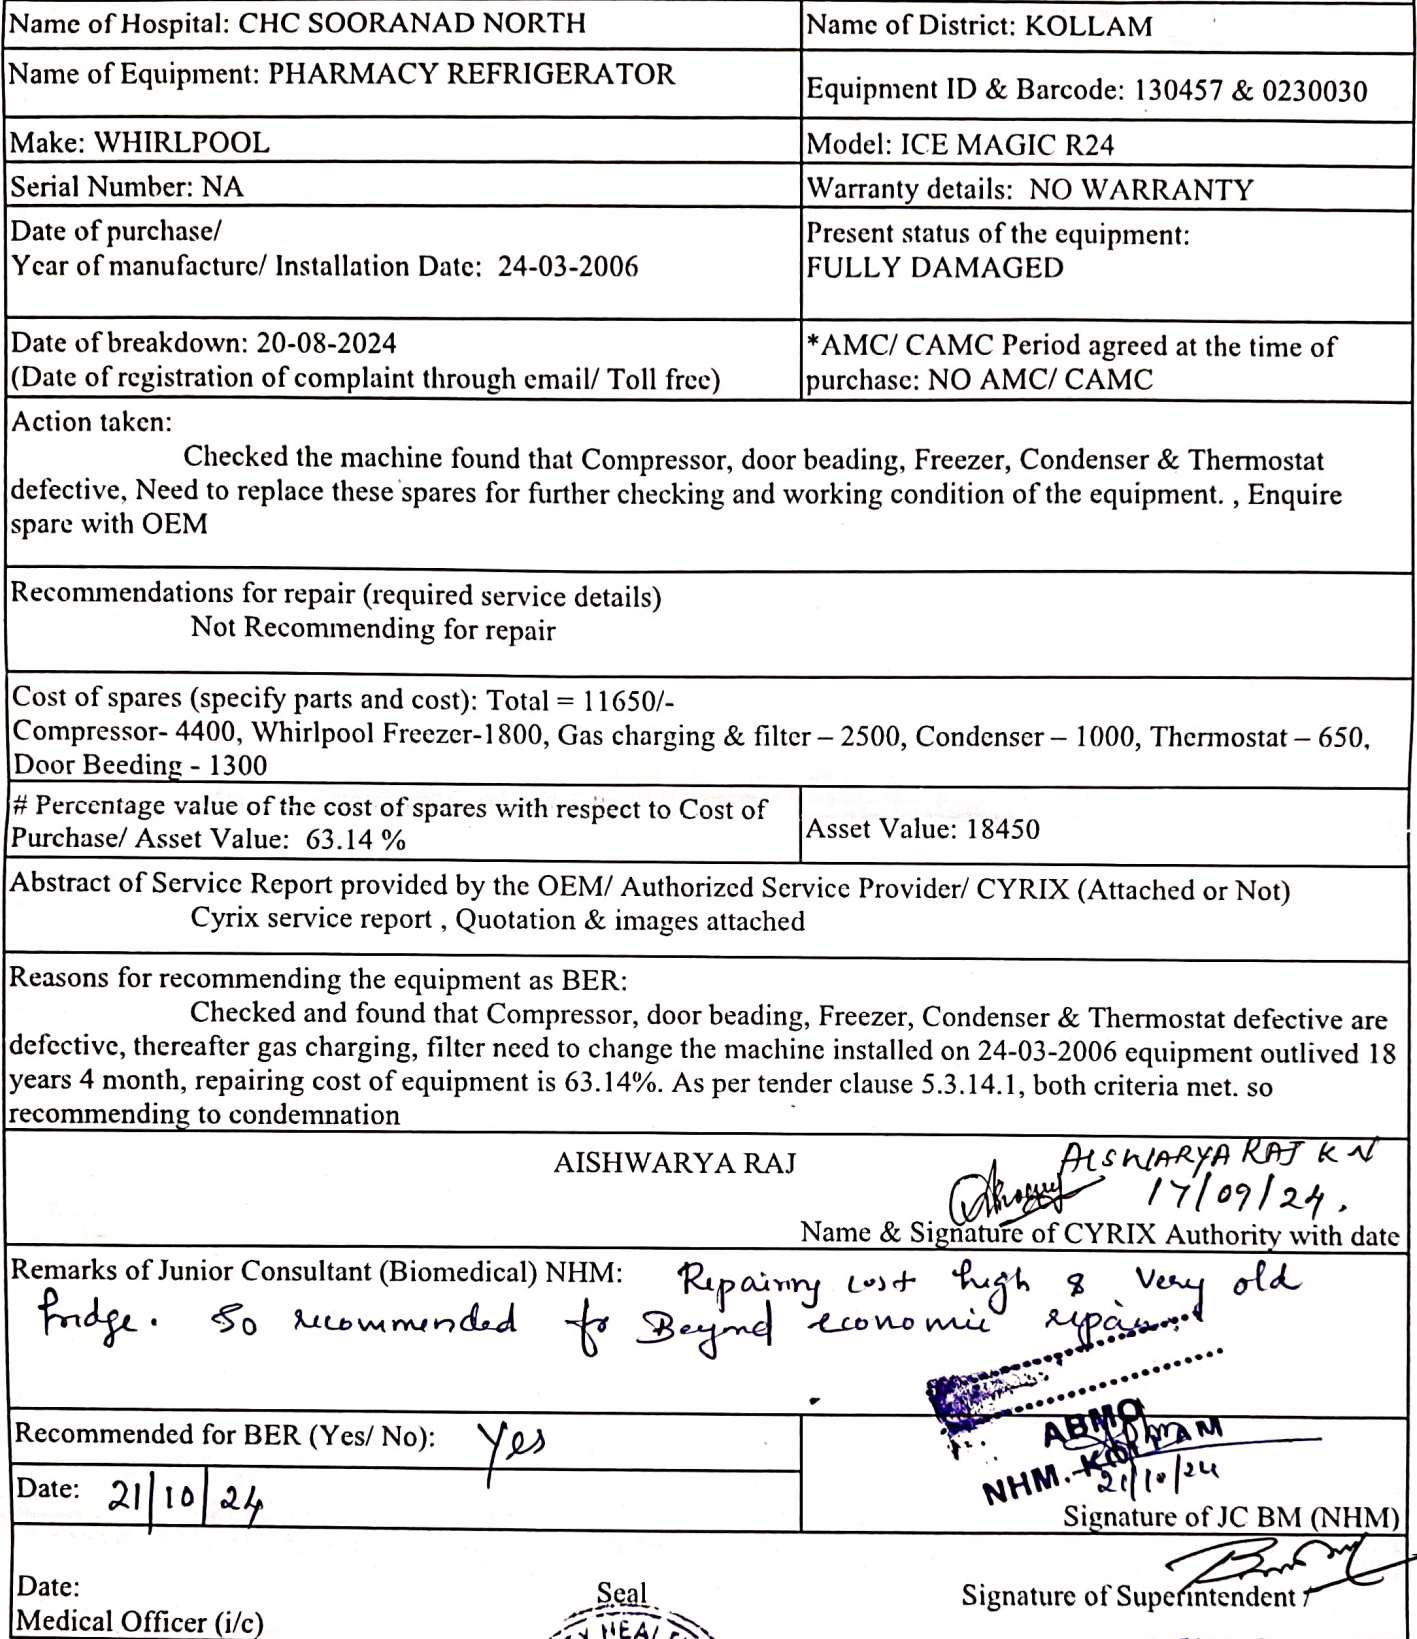 Name of Hospital: CHC SOORANAD NORTH
Name of District: KOLLAM
Name of Equipment: PHARMACY REFRIGERATOR
Equipment ID & Barcode: 130457 & 0230030
Make: WHIRLPOOL
Model: ICE MAGIC R24
Serial Number: NA
Warranty details: NO WARRANTY
Date of purchase/
Year of manufacture/ Installation Date: 24-03-2006
Present status of the equipment:
FULLY DAMAGED
Date of breakdown: 20-08-2024
(Date of registration of complaint through email/ Toll free)
*AMC/ CAMC Period agreed at the time of
purchase: NO AMC/ CAMC
Action taken:
Checked the machine found that Compressor, door beading, Freezer, Condenser & Thermostat
defective, Need to replace these spares for further checking and working condition of the equipment. , Enquire
spare with OEM
Recommendations for repair (required service details)
Not Recommending for repair
Cost of spares (specify parts and cost): Total = 11650/-
Compressor- 4400, Whirlpool Freezer-1800, Gas charging & filter – 2500, Condenser – 1000, Thermostat – 650,
Door Beeding - 1300
# Percentage value of the cost of spares with respect to Cost of
Purchase/ Asset Value: 63.14 %
Asset Value: 18450
Abstract of Service Report provided by the OEM/ Authorized Service Provider/ CYRIX (Attached or Not)
Cyrix service report , Quotation & images attached
Reasons for recommending the equipment as BER:
Checked and found that Compressor, door beading, Freezer, Condenser & Thermostat defective are
defective, thereafter gas charging, filter need to change the machine installed on 24-03-2006 equipment outlived 18
years 4 month, repairing cost of equipment is 63.14%. As per tender clause 5.3.14.1, both criteria met. so
recommending to condemnation
AISHWARYA RAJ
AISWARYA RAJ K N
17/09/24.
Name & Signature of CYRIX Authority with date
Remarks of Junior Consultant (Biomedical) NHM: Repairing cost high & Very old
fridge. So recommended for Beyond economic repair
Recommended for BER (Yes/ No): Yes
Date: 21/10/24
ABMO
NHM. KOLLAM
21/10/24
Signature of JC BM (NHM)
Date:
Medical Officer (i/c)
Seal
Signature of Superintendent /